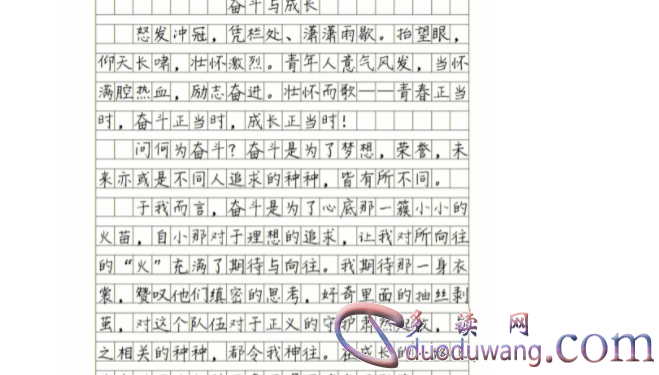 奋斗与成长
怒发冲冠，凭栏处、潇潇雨歇。抬望眼，
仰天长啸，壮怀激烈。青年人意气风发，当怀
满腔热血，励志奋进。壮怀而歌——青春正当
时，奋斗正当时，成长正当时！
问何为奋斗？奋斗是为了梦想，荣誉，未
来亦或是不同人追求的种种，皆有所不同。
于我而言，奋斗是为了心底那一簇小小的
火苗，自小那对于理想的追求，让我对所向往
的“火”充满了期待与向往。我期待那一身衣
裳，赞叹他们缜密的思考，好奇里面的抽丝剥
茧，对这个队伍对于正义的守护肃然
之相关的种种，都令我神往。在成长的
多读网
duoduwang.com